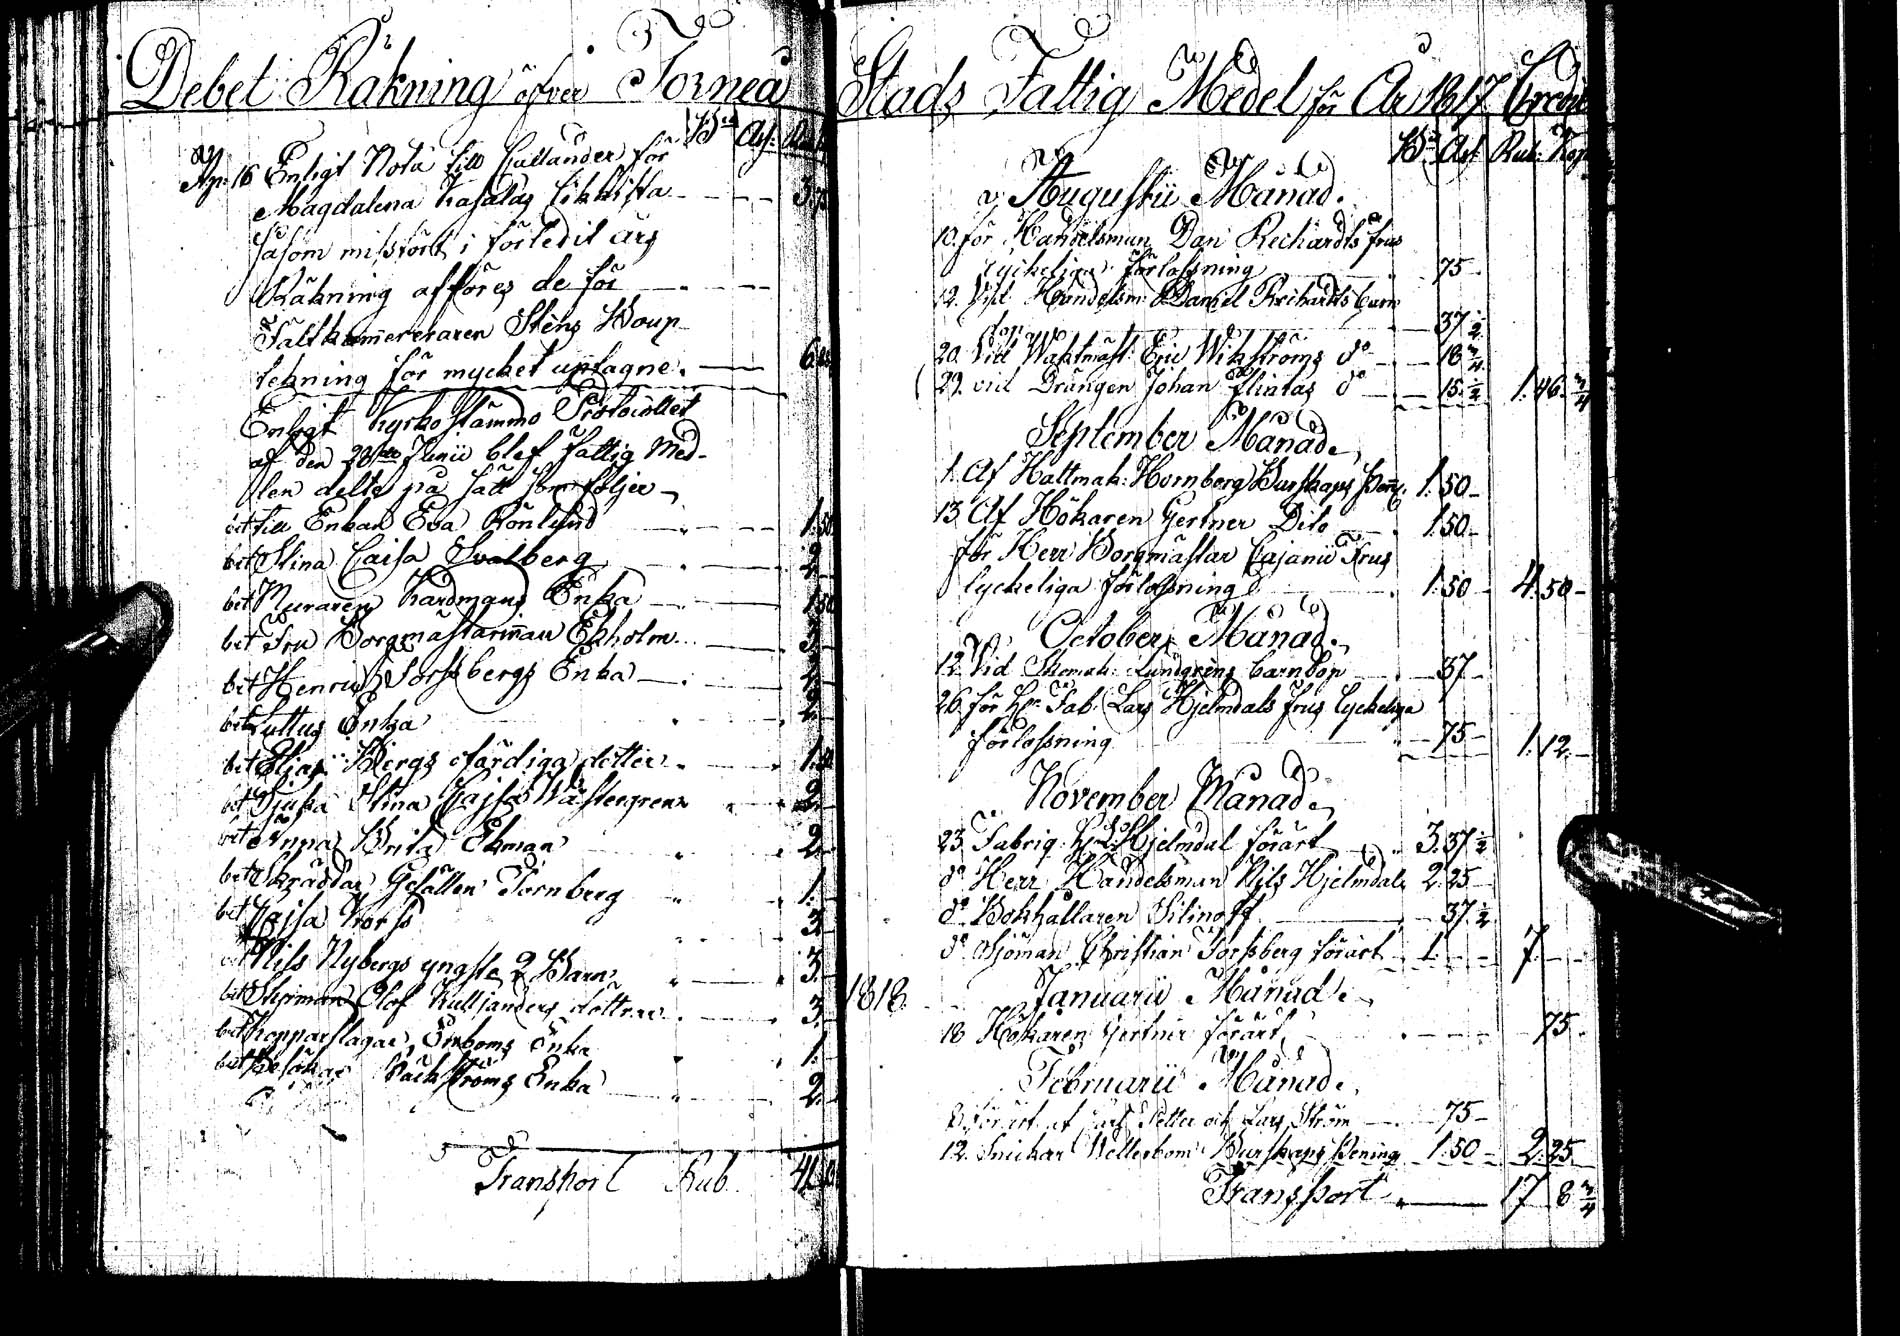 Debet Räkning öfver Torneå
Bco Ass: Rub
Ap: 16 Enligt Nota till Callander för
Magdalena Kasalas likkista 3:75
såsom missfördt i förledit års
Räkning afföres de för
Fältkamereraren Stens Boup
tekning för mycket uptagne. 6.
Enligt Kyrkostämmo Protocollet
af den 28de Junii blef fattig Med-
len delte på sätt som följer
bet till Enkan Eva Rönlund 1:50
bet Stina Caisa Svalberg 2
bet Muraren Hardmans Enka 1:50
bet Fru Borgmästarinnan Ekholm 3.
bet Henric Forssbergs Enka 2
bet Luttus Enka 2
bet Elias Bergs ofärdiga dotter 1:50
bet Sjuka Stina Cajsa Wästergren 2
bet Anna Brita Ekman 2.
bet Skräddar Gesällen Törnberg 1.
bet Kajsa Korss 3.
bet Nils Nybergs yngste 2 Barn 3.
bet Styrman Olof Kulljanders döttrar 3.
bet Kopparslagar Enboms Enka 1.
bet Besökar Bäckströms Enka 2.
Transport Rub. 41.
Stads Fattig Medel för År 1817 Credit
Bco Ass Rub: Kop
Augustii Månad.
10. för Handelsman Dan Reichardts frus
lyckeliga förlossning 75
12. Vid Handelsm: Daniel Reichardts barn
dop 37 1/2
20. Vid Waktmäst: Eric Wikströms do 18 3/4
29. vid Drängen Johan Flintas do 15 1/2 1:46 3/4
September Månad.
1. Af Hattmak: Hornberg Burskaps Penn: 1:50
13. Af Hökaren Gertner Dito 1:50
för Herr Borgmästar Cajanii Frus
lyckeliga förlossning 1:50 4.50
October Månad.
12. Vid Skomak: Lundgrens barndop 37
26. för Hr Fab: Lars Hjelmdals frus lyckeliga
förlossning 75 1.12.
November Månad.
23. Fabriq: Hr L: Hjelmdal förärt 3.37 1/2
do Herr Handelsman Nils Hjelmdal 2:25
do Bokhållaren Silinoff 37 1/2
do Sjöman Christian Forssberg förärt 1. 7.
1818. Januarii Månad.
18 Hökaren Gertner förärt 75
Februarii Månad.
8. förärt af Carl Petter och Lars Ström 75
12. Snickar Wellerbom Burskaps Pening 1:50 2:25
Transport 17 8 3/4